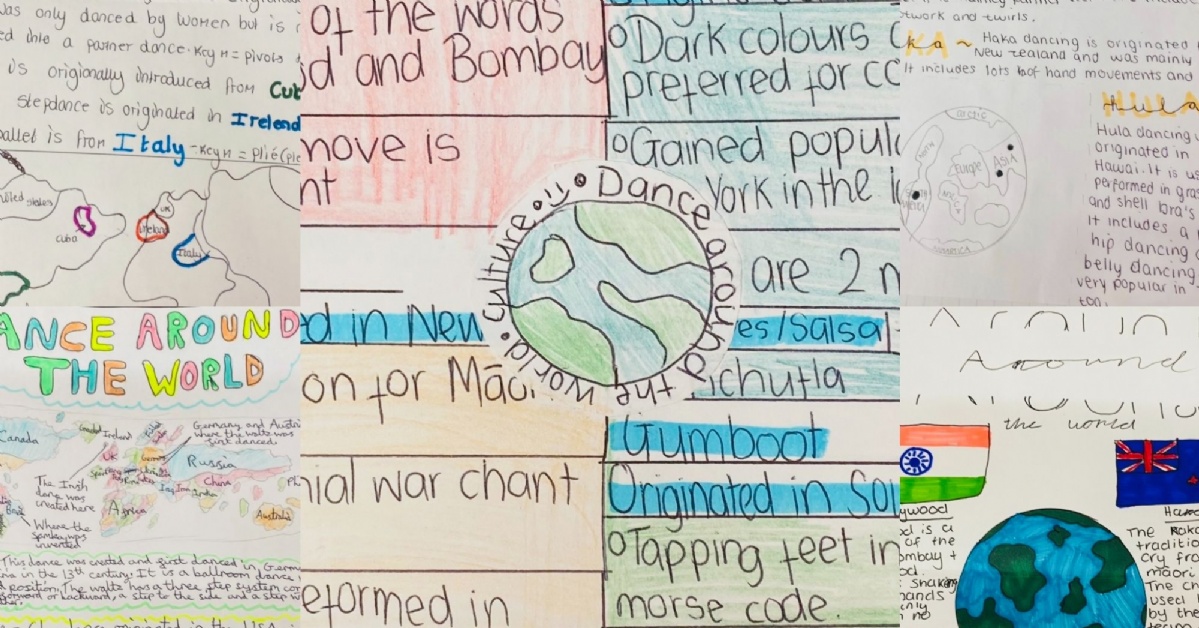 was only danced by women but is
ed into a partner dance. Key M = pivots
is origionally introduced from Cub
stepdance is originated in Irelend
ballet is from Italy - Key M = Plié (ple
United states
Cuba
UK
Ireland
Italy
ANCE AROUND
THE WORLD
Canada
Ireland
UK
Germany and Austri
where the waltz was
first danced.
Russia
China
India
Africa
Australia
The Irish
dance was
created here
Where the
samba was
invented
This dance was created and first danced in Germ
in the 13th century. It is a ballroom dance
position. The waltz has a three step system
forward or backward, a step to the side and a step
originated in the USA
of the words
d and Bombay
move is
nt
ed in New
on for Māo
nial war chant
eformed in
Dance around the world. Culture.
Dark colours
preferred for co
Gained popul
York in the
are 2
es/Salsa
chutla
Gumboot
Originated in Sou
Tapping feet in
morse code.
twork and twirls.
Ka ~ Haka dancing is originated
New zealand and was mainly
It includes lots of hand movements and
Arctic
Europe
ASIA
Hula
Hula dancing
originated in
Hawai. It is us
performed in gras
and shell bra's
It includes a
hip dancing
belly dancing
very popular in
too.
Around
the world
ywood
is a
of the
ombay +
shaking
hands
The Haka
traditio
cry fro
māori
The ch
used
by the